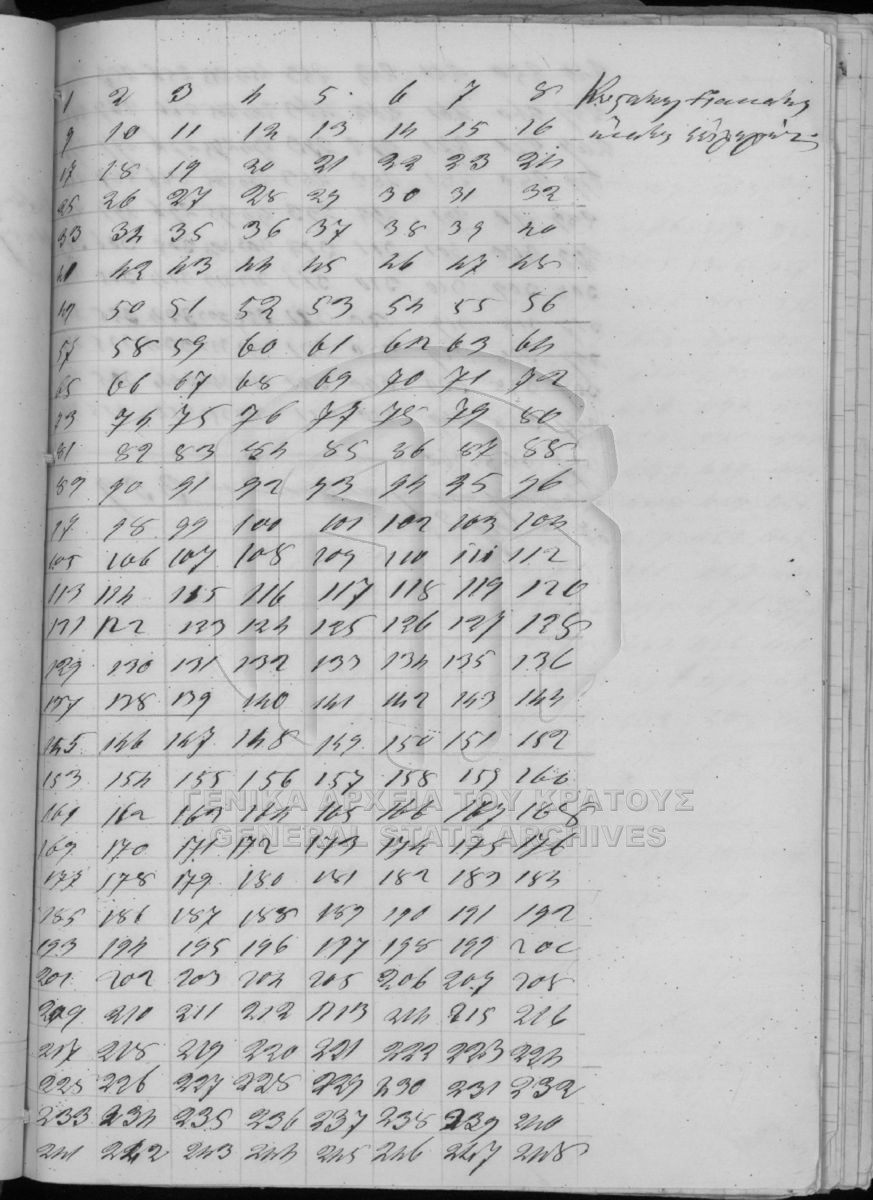 1 2 3 4 5 6 7 8
9 10 11 12 13 14 15 16
17 18 19 20 21 22 23 24
25 26 27 28 29 30 31 32
33 34 35 36 37 38 39 40
41 42 43 44 45 46 47 48
49 50 51 52 53 54 55 56
57 58 59 60 61 62 63 64
65 66 67 68 69 70 71 72
73 74 75 76 77 78 79 80
81 82 83 84 85 86 87 88
89 90 91 92 93 94 95 96
97 98 99 100 101 102 103 104
105 106 107 108 109 110 111 112
113 114 115 116 117 118 119 120
121 122 123 124 125 126 127 128
129 130 131 132 133 134 135 136
137 138 139 140 141 142 143 144
145 146 147 148 149 150 151 152
153 154 155 156 157 158 159 160
161 162 163 164 165 166 167 168
ΓΕΝΙΚΑ ΑΡΧΕΙΑ ΤΟΥ ΚΡΑΤΟΥΣ
GENERAL STATE ARCHIVES
169 170 171 172 173 174 175 176
177 178 179 180 181 182 183 184
185 186 187 188 189 190 191 192
193 194 195 196 197 198 199 200
201 202 203 204 205 206 207 208
209 210 211 212 213 214 215 216
217 218 219 220 221 222 223 224
225 226 227 228 229 230 231 232
233 234 235 236 237 238 239 240
241 242 243 244 245 246 247 248